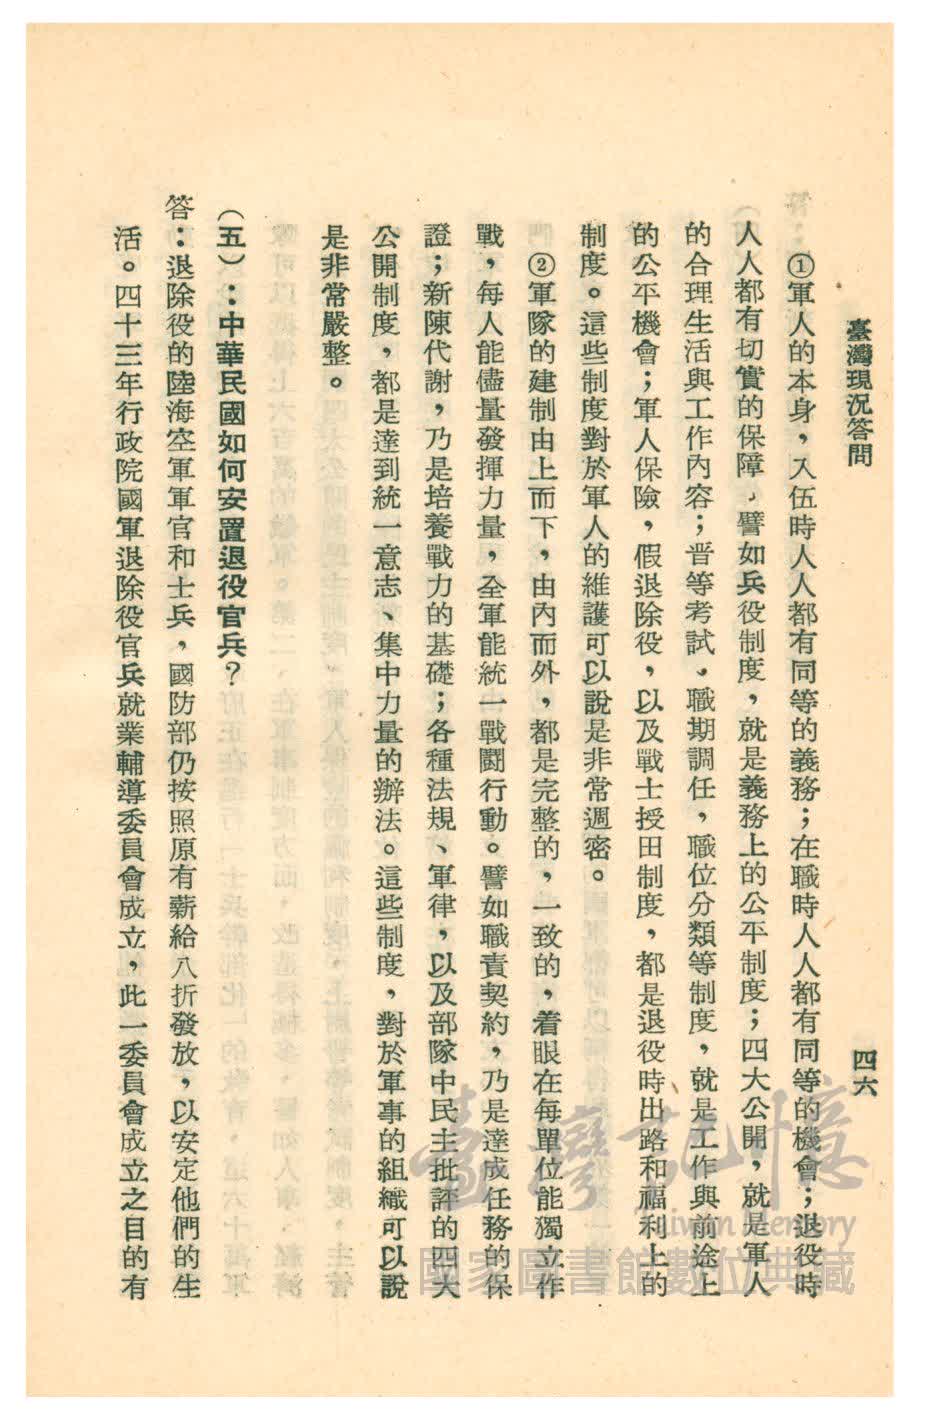 臺灣現況答問
四六
①軍人的本身，入伍時人人都有同等的義務；在職時人人都有同等的機會；退役時
人人都有切實的保障，譬如兵役制度，就是義務上的公平制度；四大公開，就是軍人
的合理生活與工作內容；晋等考試，職期調任，職位分類等制度，就是工作與前途上
的公平機會；軍人保險，假退除役，以及戰士授田制度，都是退役時出路和福利上的
制度。這些制度對於軍人的維護可以說是非常週密。
②軍隊的建制由上而下，由內而外，都是完整的，一致的，着眼在每單位能獨立作
戰，每人能儘量發揮力量，全軍能統一戰鬪行動。譬如職責契約，乃是達成任務的保
證；新陳代謝，乃是培養戰力的基礎；各種法規、軍律，以及部隊中民主批評的四大
公開制度，都是達到統一意志、集中力量的辦法。這些制度，對於軍事的組織可以說
是非常嚴整。
（五）：中華民國如何安置退役官兵？
答：退除役的陸海空軍軍官和士兵，國防部仍按照原有薪給八折發放，以安定他們的生
活。四十三年行政院國軍退除役官兵就業輔導委員會成立，此一委員會成立之目的有
臺灣記憶
Taiwan Memory
國家圖書館數位典藏